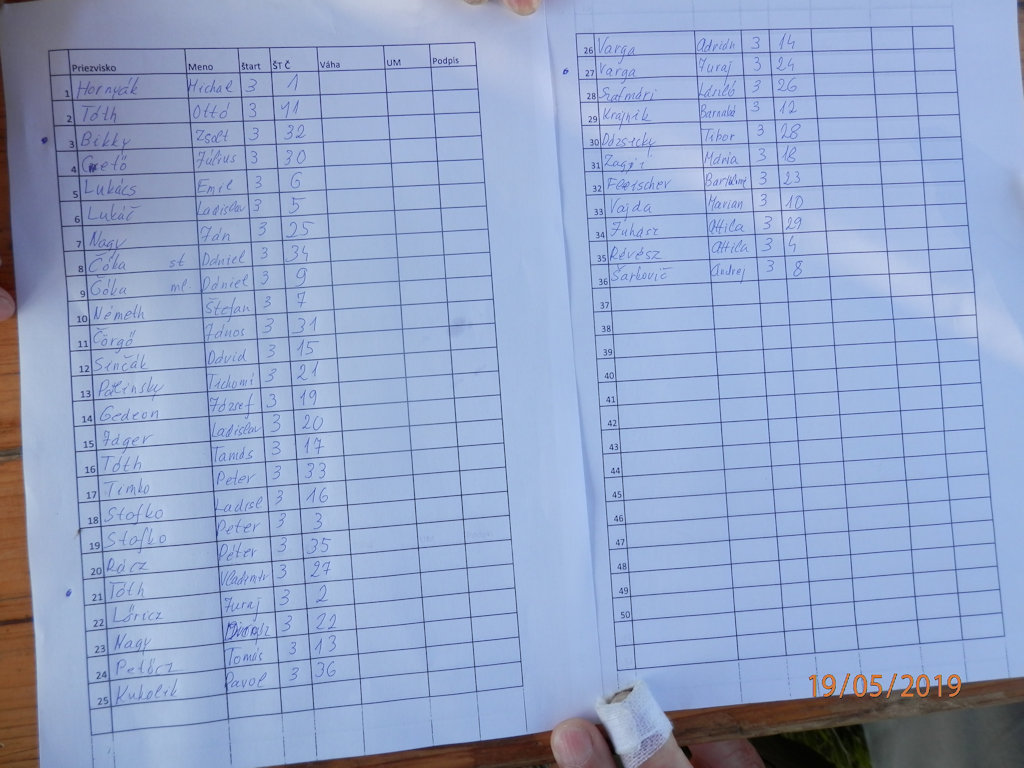 Priezvisko Meno štart ŠT Č Váha UM Podpis
1 Hornyák Michal 3 1
2 Tóth Ottó 3 11
3 Bekky Zsolt 3 32
4 Július 3 30
5 Lukács Emil 3 6
6 Lukáč Ladislav 3 5
7 Nagy Ján 3 25
8 Čóka st Daniel 3 34
9 Čóka ml. Daniel 3 9
10 Németh Štefan 3 7
11 Csörgő János 3 31
12 Sinčák Dávid 3 15
13 Patinsky Tichomi 3 21
14 Gedeon József 3 19
15 Jáger Ladislav 3 20
16 Tóth Tamás 3 17
17 Timko Peter 3 33
18 Stofko Ladisl 3 16
19 Stofko Peter 3 3
20 Rácz Péter 3 35
21 Tóth Vladimír 3 27
22 Lőricz Juraj 3 2
23 Nagy 3 22
24 Petőcz Tomás 3 13
25 Kukolik Pavol 3 36
26 Varga Adrián 3 14
27 Varga Juraj 3 24
28 Szatmári László 3 26
29 Krajnik Barnabá 3 12
30 Tibor 3 28
31 Zagyi Mária 3 18
32 Fleischer 3 23
33 Vajda Marian 3 10
34 Juhász Attila 3 29
35 Révész Attila 3 4
36 Šarkovič Andrej 3 8
37
38
39
40
41
42
43
44
45
46
47
48
49
50
19/05/2019